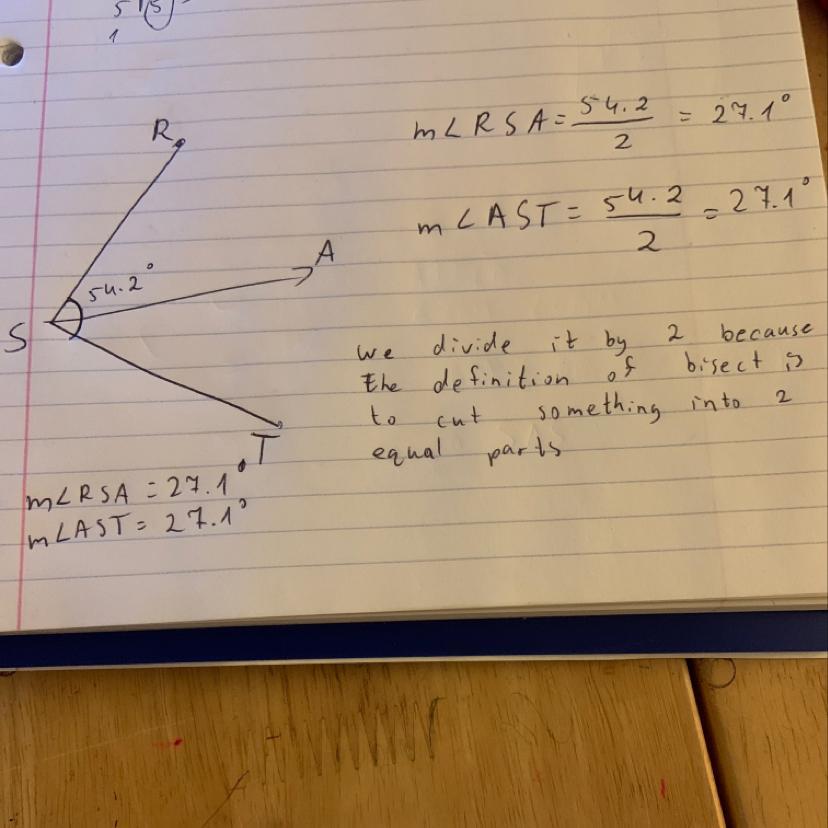 5 1 5
1
R
m∠RSA = 54.2/2 = 27.1°
m∠AST = 54.2/2 = 27.1°
A
54.2°
S
we divide it by 2 because
the definition of bisect is
to cut something into 2
equal parts
T
m∠RSA = 27.1°
m∠AST = 27.1°